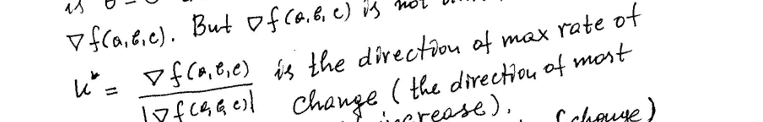 is θ =
∇f(a,b,c). But ∇f(a,b,c) is not
u* = ∇f(a,b,c) / |∇f(a,b,c)| is the direction of max rate of
change (the direction of most
increase).